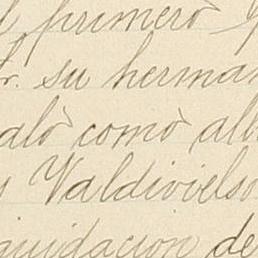 primerò
su herman
alò comò alb
Valdivielso
quidacion de